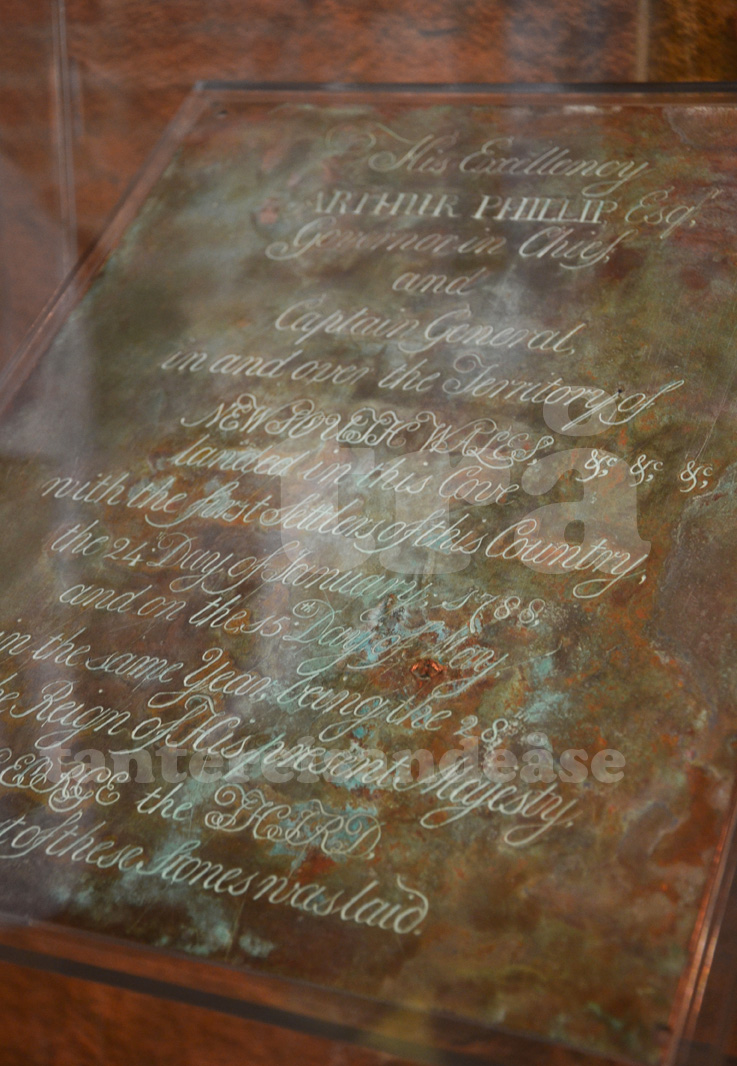 His Excellency
ARTHUR PHILLIP Esqr,
Governor in Chief,
and
Captain General,
in and over the Territory of
NEW SOUTH WALES, &c &c &c
landed in this Cove
with the first Settlers of this Country,
the 24th Day of January, 1788,
and on the 15th Day of May
in the same Year, being the 28th
Reign of His present Majesty,
the THIRD,
of these Stones was laid.
tra